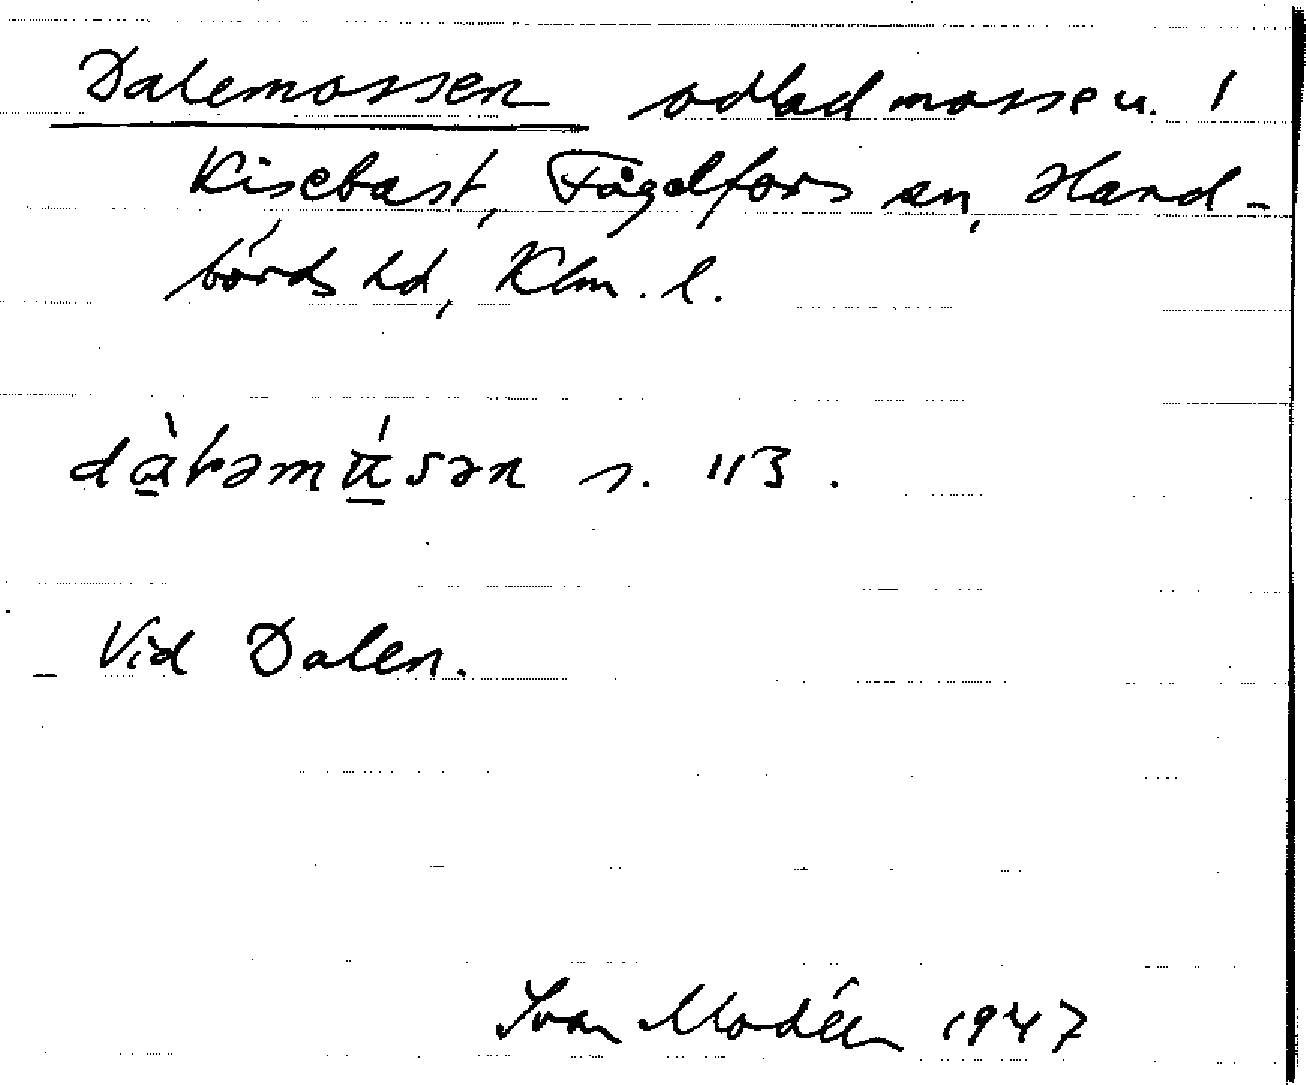 Dalemossen odlad mosse u. /
Kisebast, Fågelfors sn, Hand-
börds hd, Klm. l.
dàləmú̱sən s. 113.
Vid Dalen.
Ivan Modéer 1947